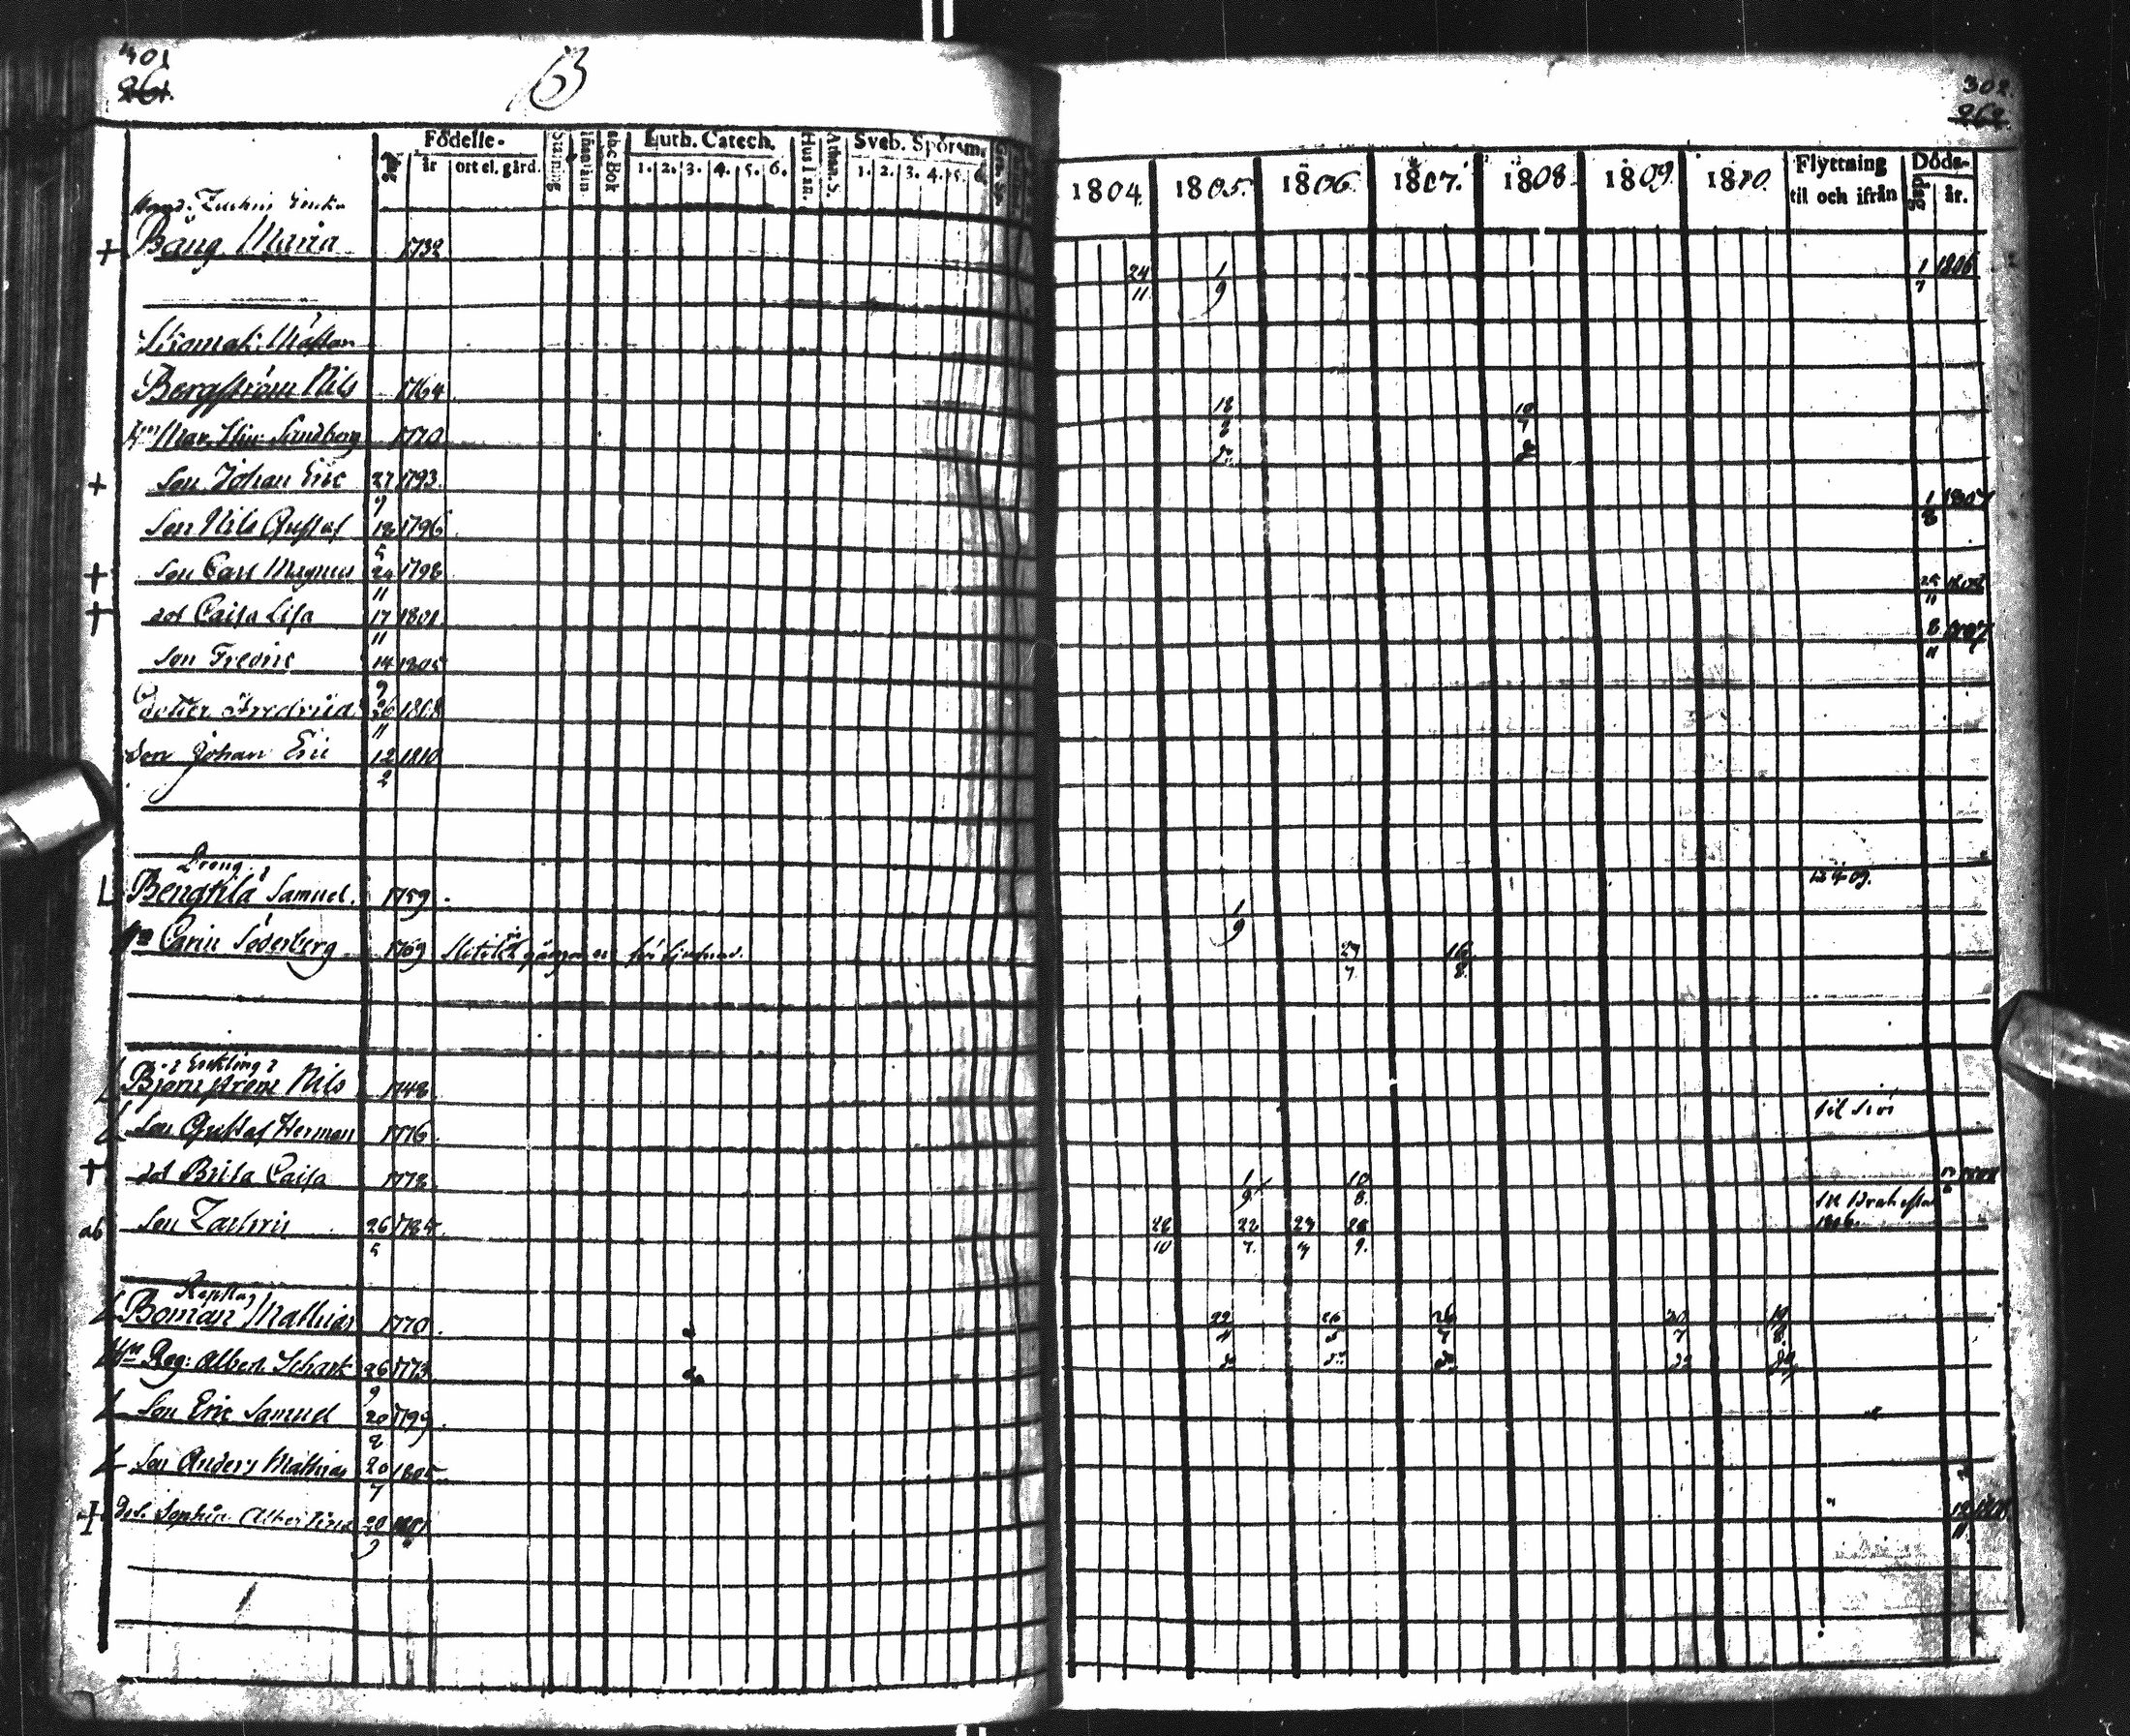 301
261.
B
302.
262.
Födelse-
dag år ort el. gård.
abc Bok
Luth. Catech.
1. 2. 3. 4. 5. 6.
Athan. S.
Sveb. Spörsm.
1. 2. 3. 4. 5. 6.
1804. 1805. 1806. 1807. 1808. 1809. 1810.
Flyttning
til och ifrån
Döds-
dag år.
Enka
+ Bång Maria 1732 24/11 1/9 1/7 1806
Skomak: Mästar
Bergström Nils 1764 18/2 10/4
Sandberg 1770 do do
+ Son Johan Eric 27/7 1793 1/8 1807
Son Nils Gustaf 12/5 1796
+ Son Carl Magnus 24/11 1798 25/11 1808
+ dot Caisa Lisa 17/11 1801 8/11 1807
Son Fredric 14/9 1805
dotter Fredrica 26/11 1808
Son Johan Eric 12/2 1810
Dräng
L Bengtila Samuel. 1759. 1/9
Carin Söderberg 1769 27/7 16/8
Enkling
L Björnström Nils 1748.
L Son Gustaf Herman 1776.
+ dot Brita Caisa 1778. 1/9 10/8
ab Son Zachris 26/5 1785. 22/10 22/7 23/3 28/9 1806
L Boman Mathias 1770. 22/4 26/7 30/7 19/8
Reg: Albert: Schark 26/9 1773. do do do do do
L Son Eric Samuel 20/2 1799.
L Son Anders Mathias 20/7 1805.
+ Dot. Sophia Albertina 20/9 1807 12/11 1808